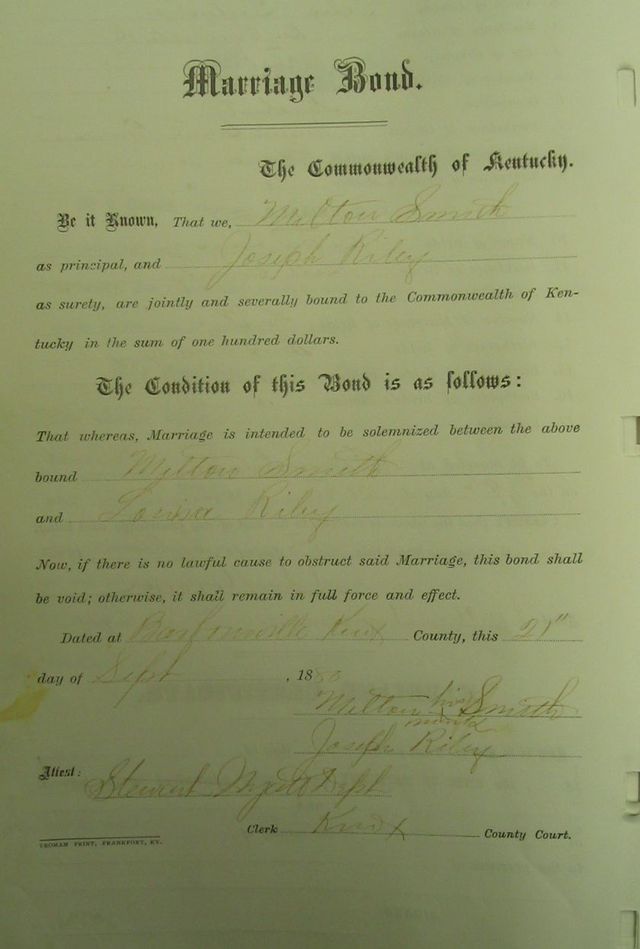 Marriage Bond.
The Commonwealth of Kentucky.
Be it Known, That we, Milton Smith
as principal, and Joseph Riley
as surety, are jointly and severally bound to the Commonwealth of Ken-
tucky in the sum of one hundred dollars.
The Condition of this Bond is as follows:
That whereas, Marriage is intended to be solemnized between the above
bound Milton Smith
and Louisa Riley
Now, if there is no lawful cause to obstruct said Marriage, this bond shall
be void; otherwise, it shall remain in full force and effect.
Dated at Barbourville Knox County, this 21"
day of Sept , 1880
Milton his Smith
mark
Joseph Riley
Attest:
Stewart
Clerk Knox County Court.
YEOMAN PRINT, FRANKFORT, KY.